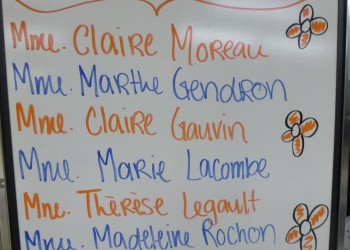 Mme. Claire Moreau
Mme. Marthe Gendron
Mme. Claire Gauvin
Mme. Marie Lacombe
Mme. Thérèse Legault
Mme. Madeleine Rochon